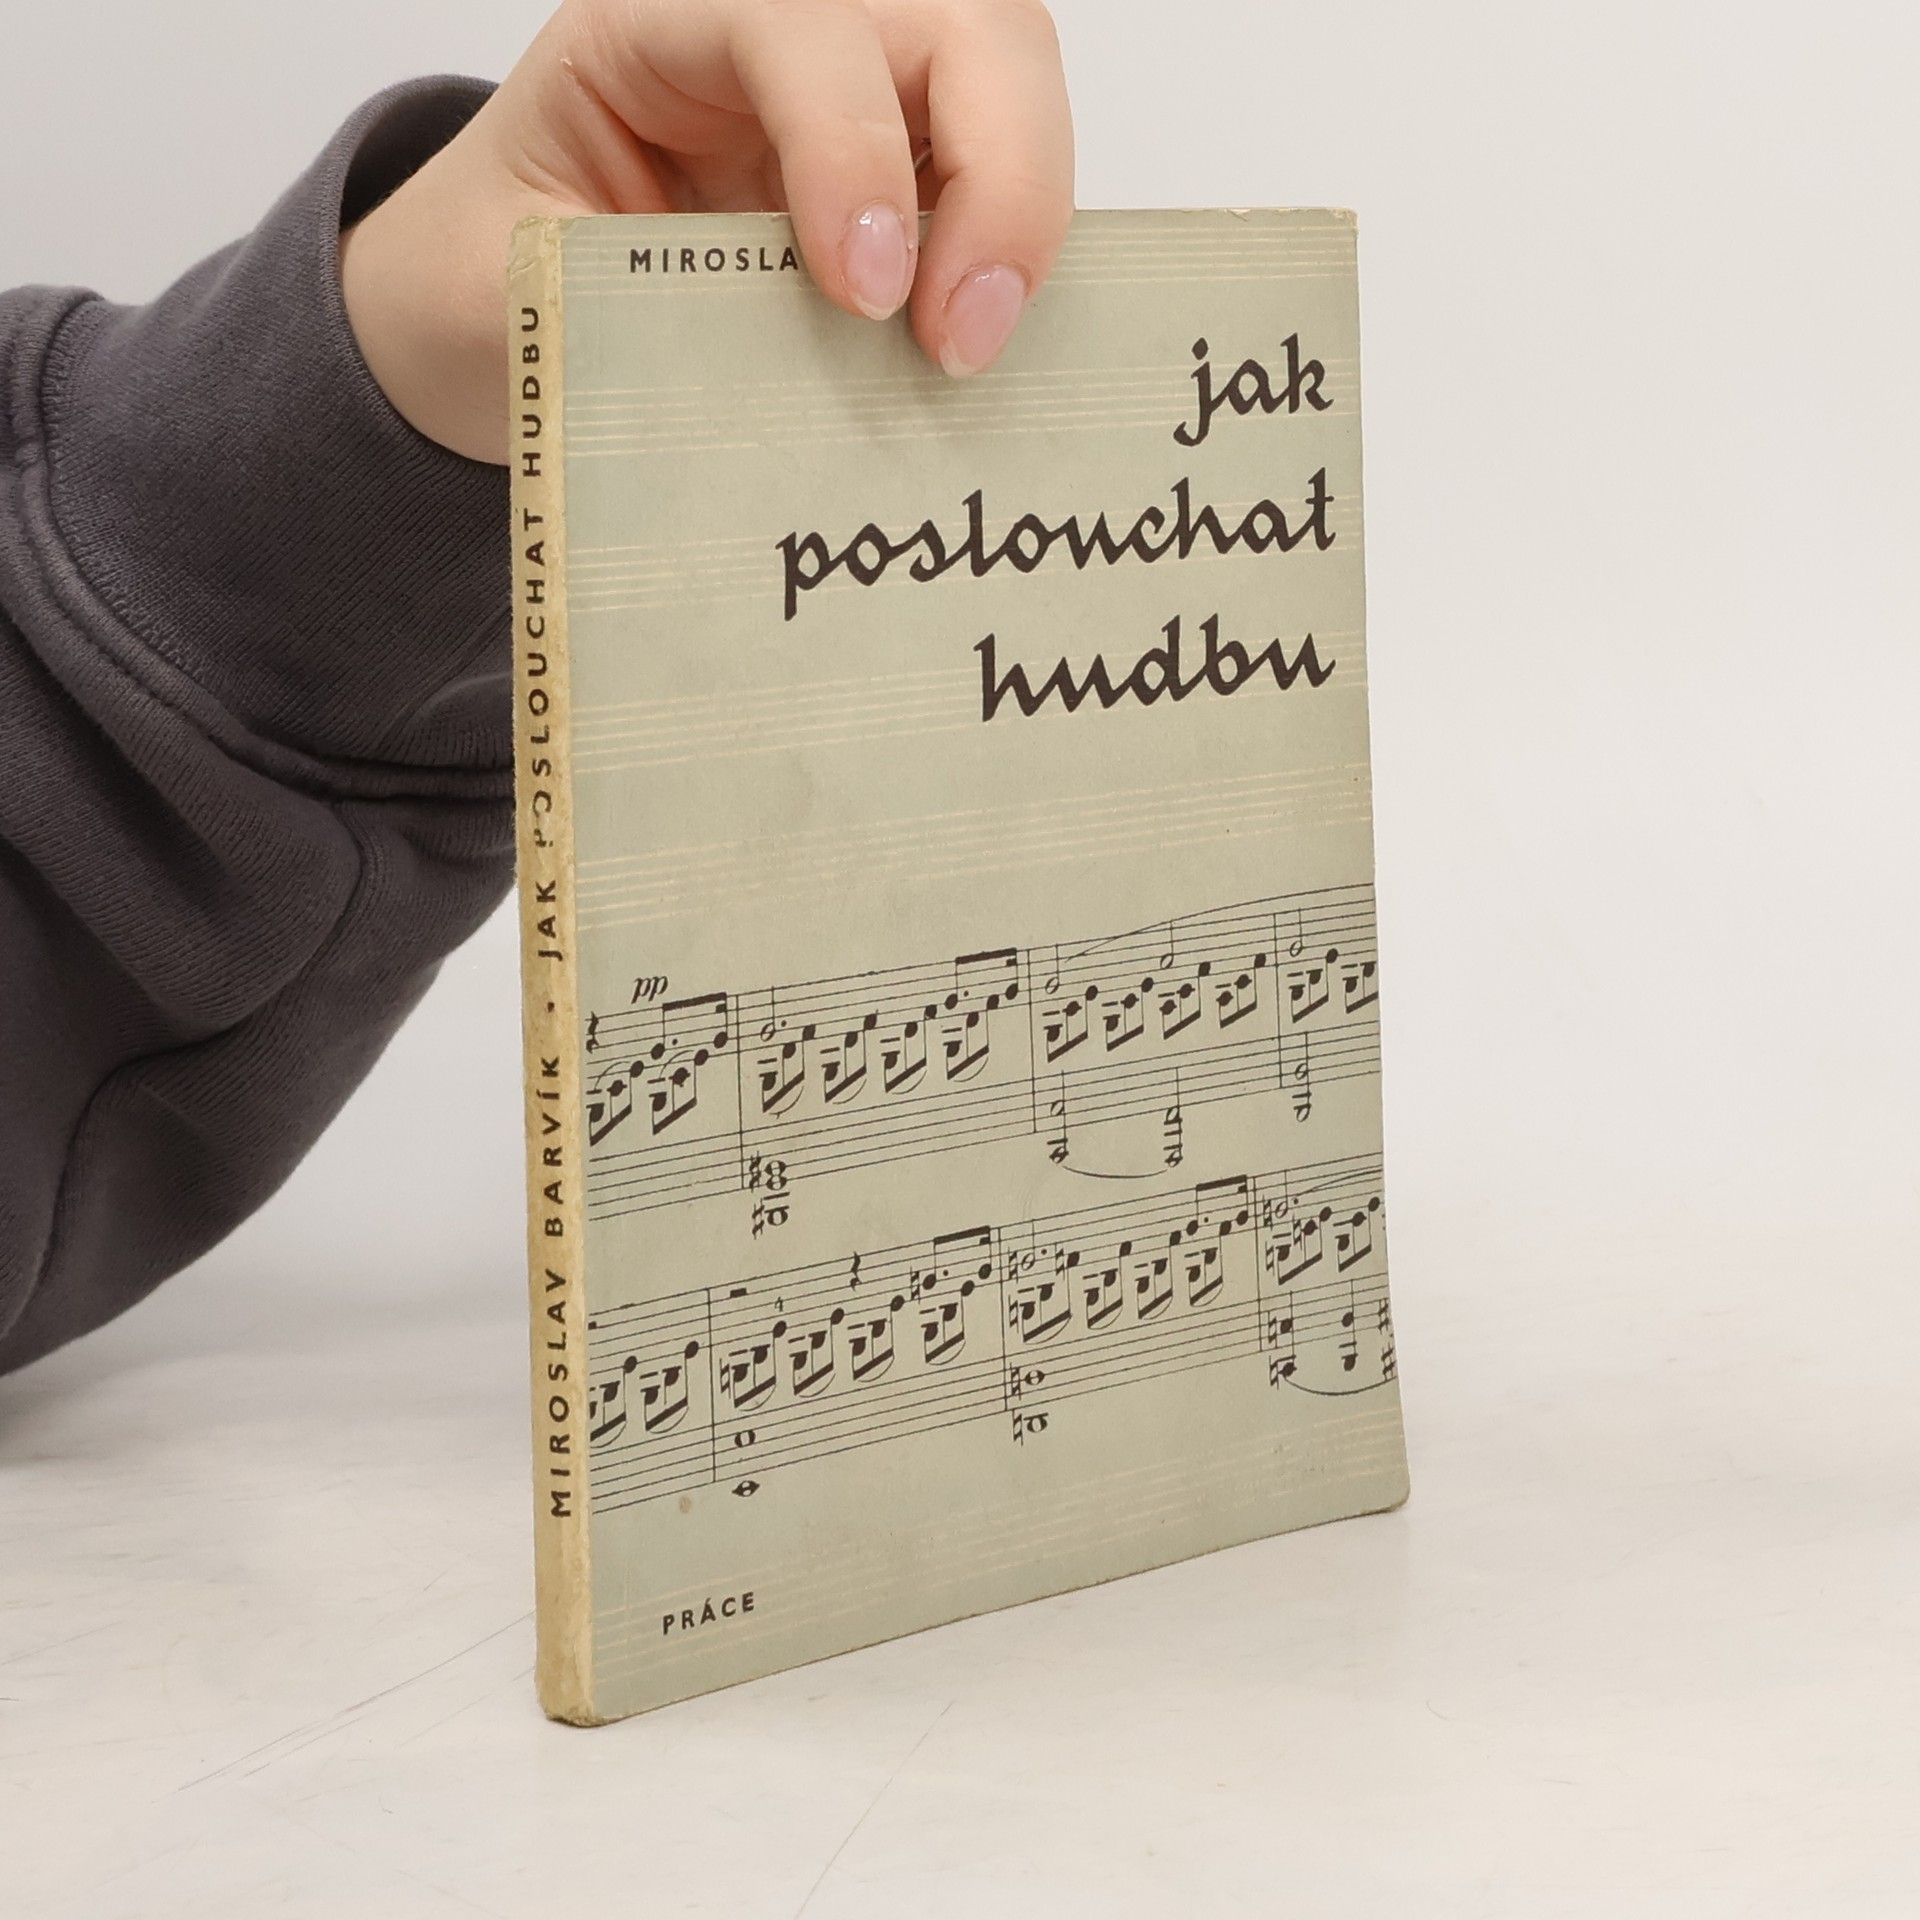 MIROSLA
jak
poslouchat
hudbu
pp
4
PRÁCE
MIROSLAV BARVÍK • JAK POSLOUCHAT HUDBU